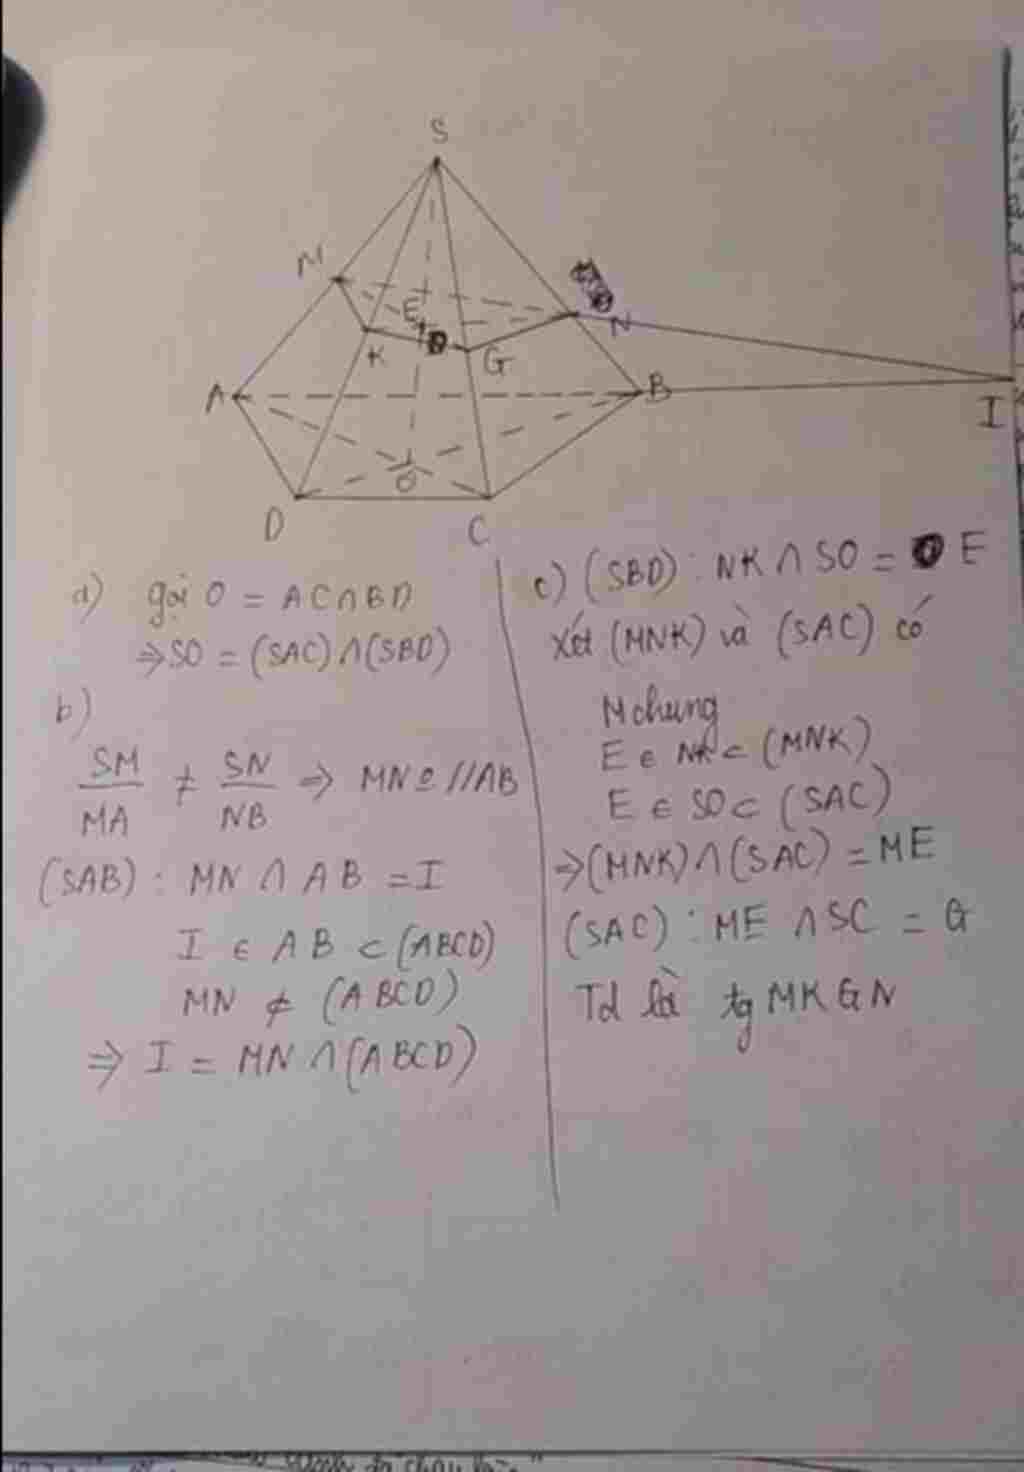 S
M
N
E
K
G
A
B
I
O
D
C
a) gọi O = AC ∩ BD
⇒ SO = (SAC) ∩ (SBD)
b)
SM/MA ≠ SN/NB ⇒ MN // AB
(SAB) : MN ∩ AB = I
I ∈ AB ⊂ (ABCD)
MN ⊄ (ABCD)
⇒ I = MN ∩ (ABCD)
c) (SBD) : NK ∩ SO = E
Xét (MNK) và (SAC) có
M chung
E ∈ NK ⊂ (MNK)
E ∈ SO ⊂ (SAC)
⇒ (MNK) ∩ (SAC) = ME
(SAC) : ME ∩ SC = G
Td là tg MKGN